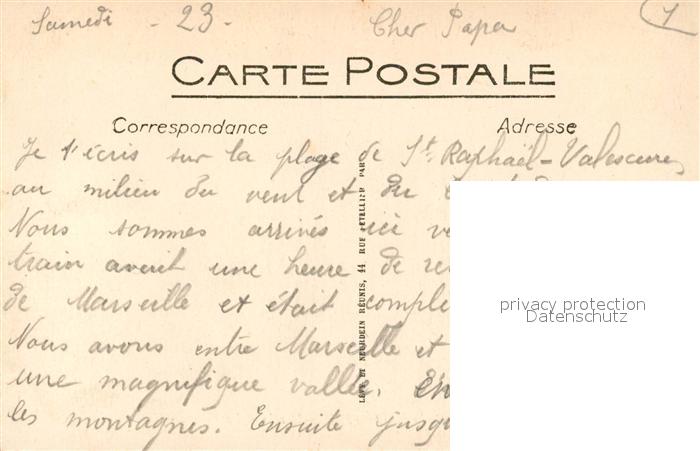 Samedi - 23 -
Cher Papa
1
CARTE POSTALE
Correspondance
Adresse
Je t'écris sur la plage de St. Raphaël-Valescure,
au milieu du vent et du
Nous sommes arrivés ici
train avait une heure de
de Marseille et était
Nous avons entre Marseille et
une magnifique vallée.
les montagnes. Ensuite
LEVY ET NEURDEIN RÉUNIS, 44 RUE LETELLIER PARIS
privacy protection
Datenschutz